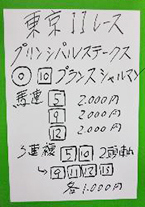 東京11レース
プリンシパルステークス
◎ 10 プランスシャルマン
馬連 5 2.000円
9 2.000円
12 2.000円
3連複 5 10 2頭軸
→ 9 11 12 13
各1.000円